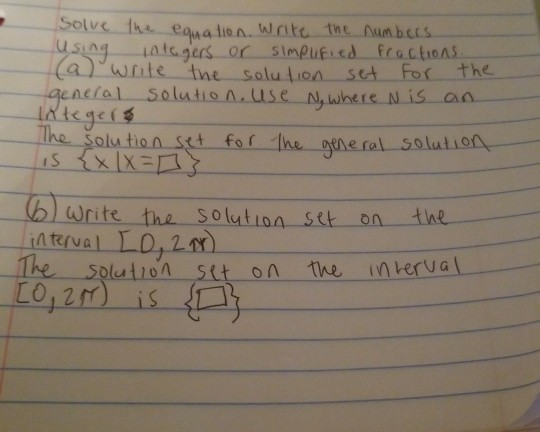 Solve the equation. Write the numbers
using integers or simplified fractions.
(a) Write the solution set for the
general solution. Use N, where N is an
integers
The solution set for the general solution
is {x|x=□}
(b) Write the solution set on the
interval [0, 2π)
The solution set on the interval
[0, 2π) is {□}